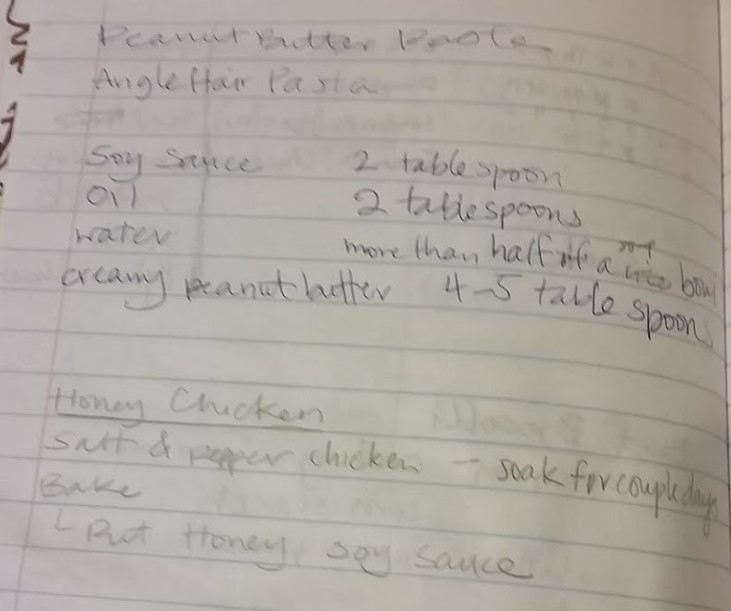 Peanut Butter
Angle Hair Pasta
Soy Sauce 2 tablespoon
Oil 2 tablespoons
water more than half of a bowl
creamy peanut butter 4-5 table spoons
Honey Chicken
Salt & pepper chicken - soak for couple days
Bake
└ Put Honey, soy sauce